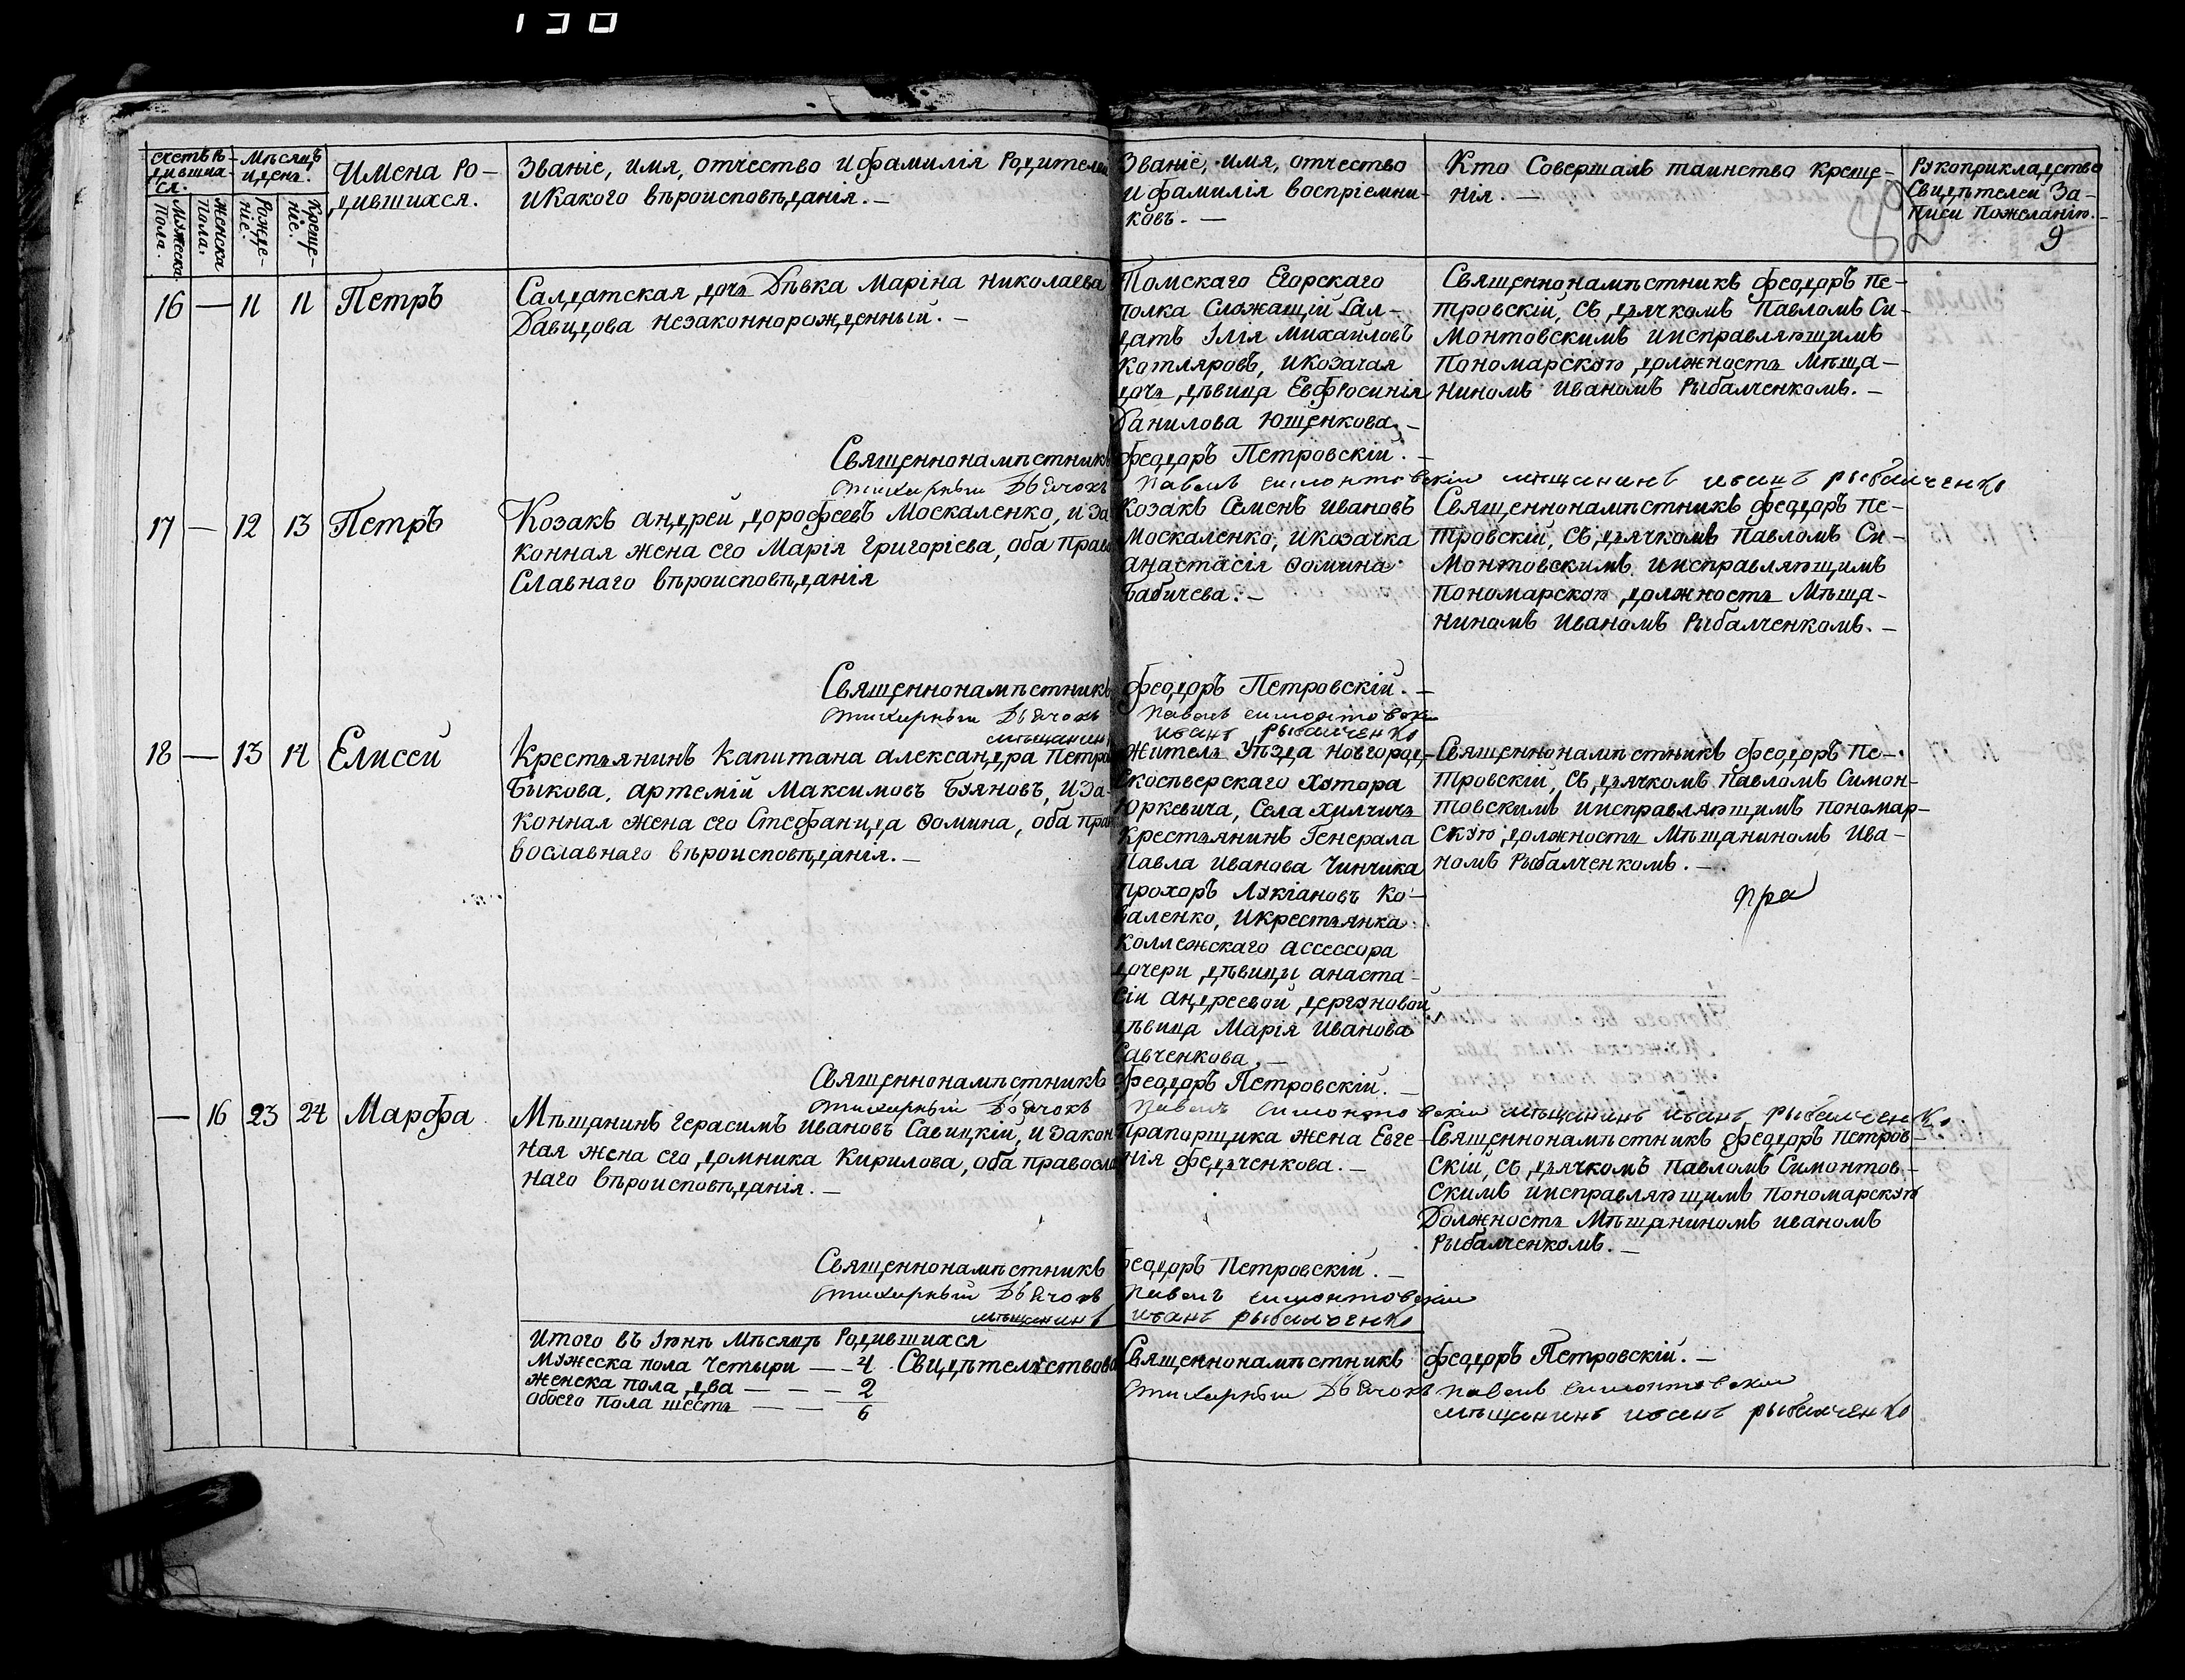 130
Счетъ ро-
дивших-
ся.
Мужеска
Пола.
Женска
Пола.
Мѣсяцъ
и день.
Рожде-
ніе.
Креще-
ніе.
Имена Ро-
дившихся.
Званіе, имя, отчество и фамилія Родителей
и Какого вѣроисповѣданія. —
Званіе, имя, отчество
и фамилія воспріемни-
ковъ. —
Кто Совершалъ таинство Креще-
нія. —
Рукоприкладство
Свидѣтелей За-
писи Пожеланію. —
82
9
16 — 11 11 Петръ
Салдатская дочь Дѣвка Маріна Николаева
Давидова незаконнорожденный. —
Томскаго Егорскаго
полка Служащій Сал-
датъ Ілія Михаиловъ
Котляровъ, и Козачая
дочь дѣвица Евфросинія
Данилова Ющенкова. —
Священнонамѣстникъ Феодоръ Пе-
тровскій, съ дьячкомъ Павломъ Си-
монтовскимъ и исправляющимъ
Пономарскую должность Мѣща-
ниномъ Иваномъ Рыбалченкомъ. —
Священнонамѣстникъ Феодоръ Петровскій. —
Стихирный Дьячокъ Павелъ Симонтовскій мѣщанинъ Иванъ Рыбалченко
17 — 12 13 Петръ
Козакъ Андрей Дорофеевъ Москаленко, и За-
конная жена его Марія Григоріева, оба Право
Славнаго вѣроисповѣданія
Козакъ Семенъ Ивановъ
Москаленко, и Козачка
Анастасія Фомина
Бабичева. —
Священнонамѣстникъ Феодоръ Пе-
тровскій, съ дьячкомъ Павломъ Си-
монтовскимъ и исправляющимъ
Пономарскою должность Мѣща-
ниномъ Иваномъ Рыбалченкомъ. —
Священнонамѣстникъ Феодоръ Петровскій. —
Стихирный Дьячокъ Павелъ Симонтовскій
мѣщанинъ Иванъ Рыбалченко
18 — 13 14 Елисей
Крестьянинъ Капитана Александра Петро
Быкова, Артемій Максимовъ Буяновъ, и За-
конная жена его Стефанида Фомина, оба Пра
вославнаго вѣроисповѣданія. —
Житель Уѣзда Новгород-
Скосѣверскаго Хутора
Юркевича, Села Хилчичь
Крестьянинъ Генерала
Павла Иванова Чинчика
Прохоръ Лукіановъ Ко-
валенко, и Крестьянка
Коллежскаго Ассессора
дочери дѣвицы Анаста-
сіи Андреевой Дергуновой,
дѣвица Марія Иванова
Савченкова. —
Священнонамѣстникъ Феодоръ Пе-
тровскій, съ дьячкомъ Павломъ Симон-
товскимъ и исправляющимъ пономар-
скую должность Мѣщаниномъ Ива-
номъ Рыбалченкомъ. —
пра
Священнонамѣстникъ Феодоръ Петровскій. —
Стихирный Дьячокъ Павелъ Симонтовскій мѣщанинъ Иванъ Рыбалченко
— 16 23 24 Марфа
Мѣщанинъ Герасимъ Ивановъ Савицкій, и Закон
ная жена его Домника Кирилова, оба Правосла
наго вѣроисповѣданія. —
Прапорщика жена Евге-
нія Федьченкова. —
Священнонамѣстникъ Феодоръ Петров-
скій, съ дьячкомъ Павломъ Симонтов-
скимъ и исправляющимъ Пономарскую
Должность Мѣщаниномъ Иваномъ
Рыбалченкомъ. —
Священнонамѣстникъ Феодоръ Петровскій. —
Стихирный Дьячокъ Павелъ Симонтовскій
мѣщанинъ Иванъ Рыбалченко
Итого въ Іюнѣ Мѣсяцѣ Родившихся
Мужеска пола четыри — 4
Женска пола два — — — 2
Обоего пола шесть — — 6
Свидѣтельствова Священнонамѣстникъ Феодоръ Петровскій. —
Стихирный Дьячокъ Павелъ Симонтовскій
мѣщанинъ Иванъ Рыбалченко